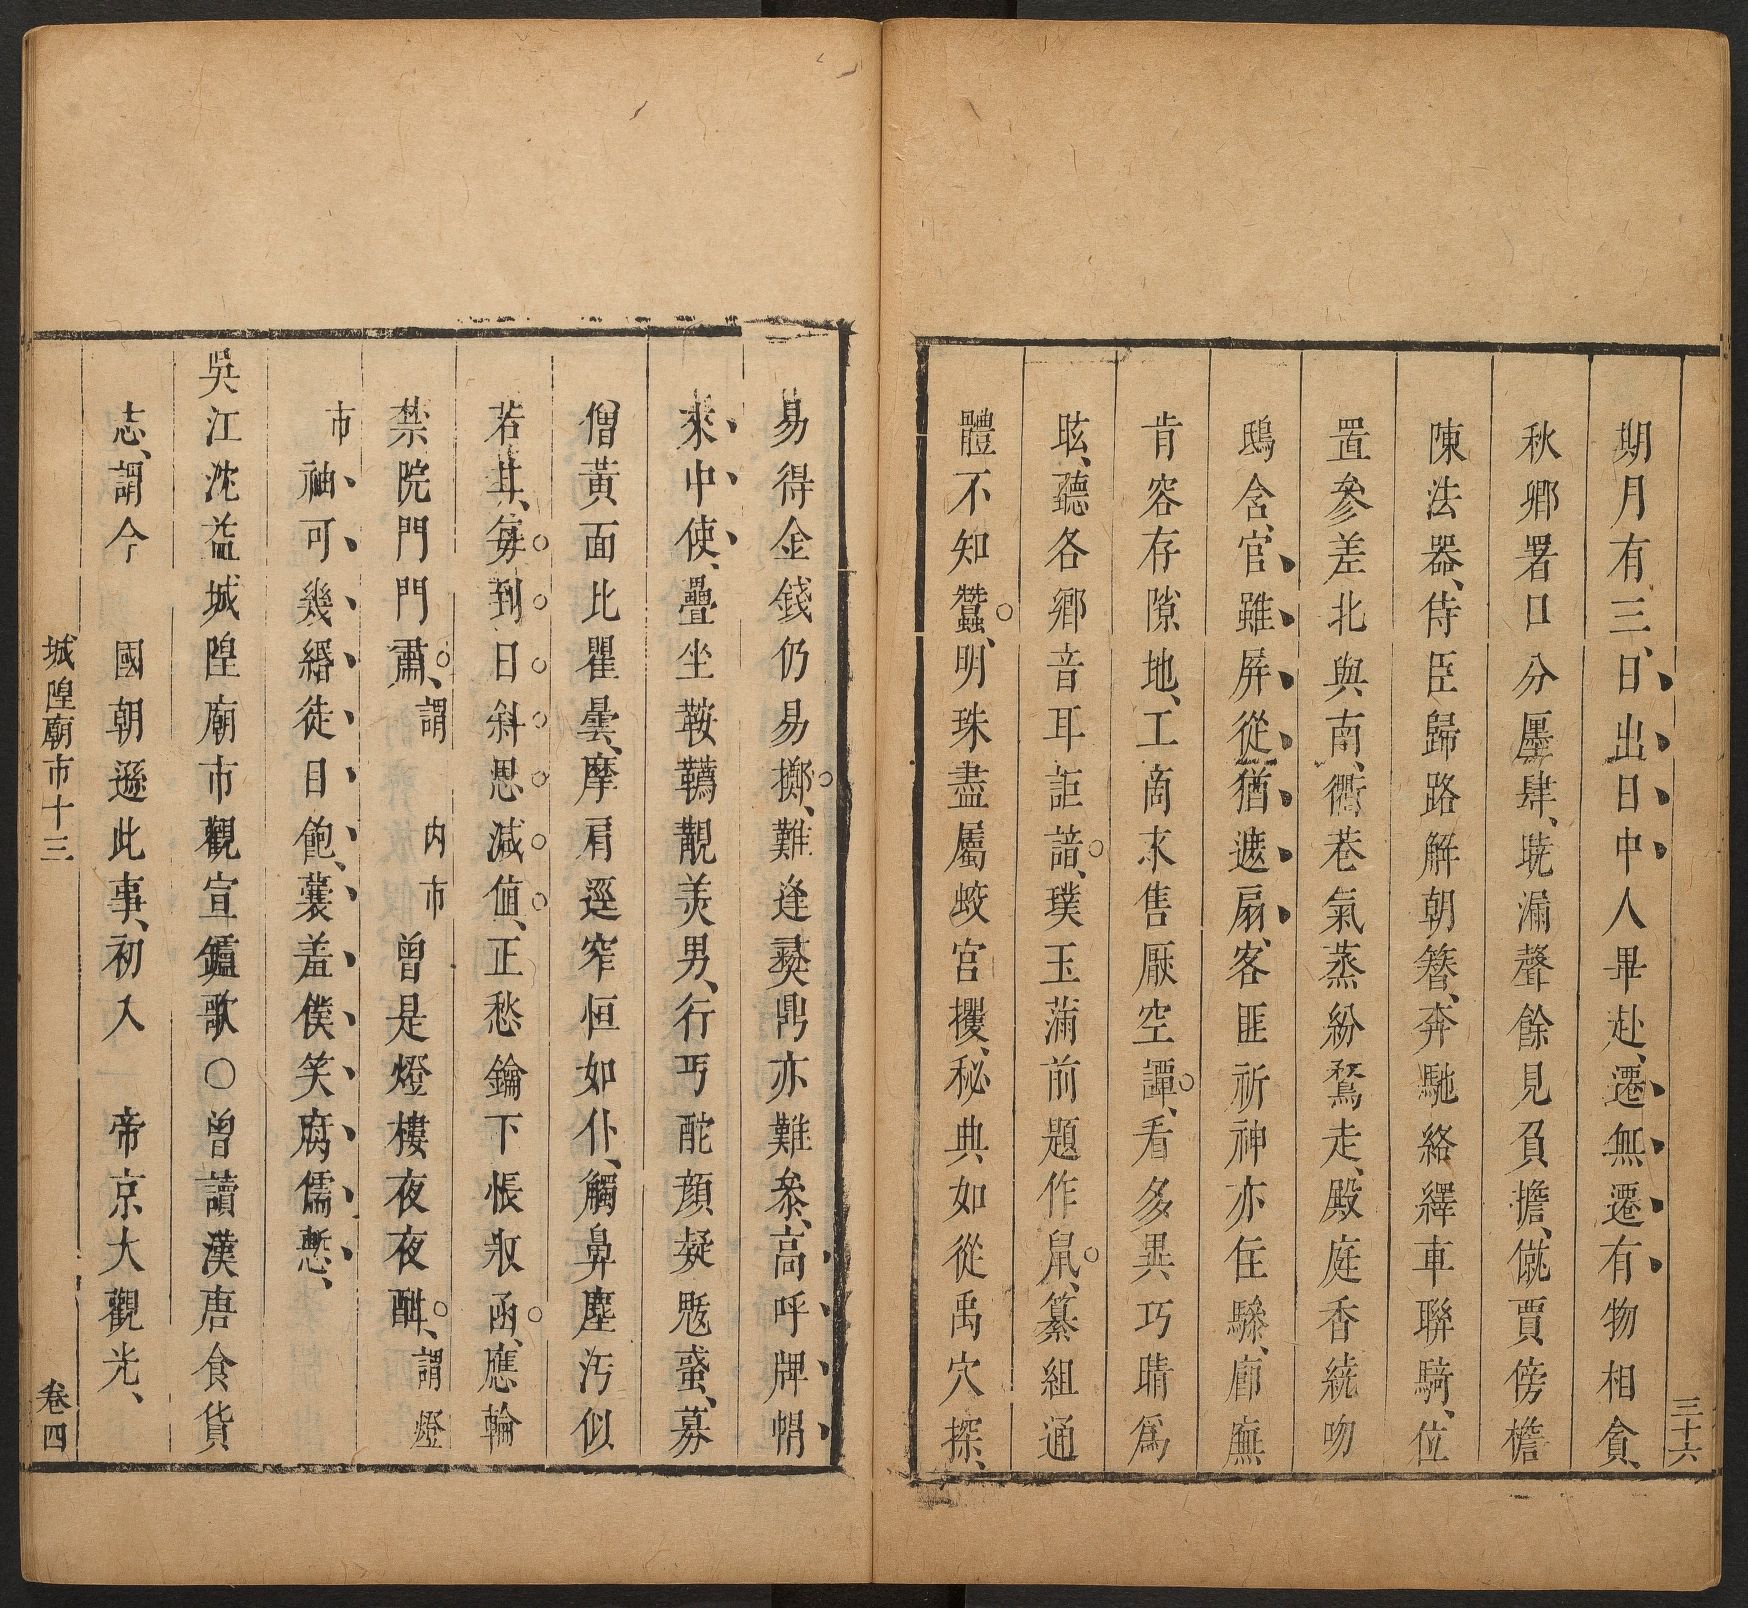 三十六
期月有三、日出日中人畢赴、遷無遷有物相貪、
秋卿署口分廛肆、曉漏聲餘見負擔、僦賈傍檐
陳法器、侍臣歸路解朝簪、奔馳絡繹車聯騎、位
置參差北與南、衢巷氣蒸紛騖走、殿庭香繞吻
鴟含、官雖屏從猶遮扇、客匪祈神亦住驂、廊廡
肯容存隙地、工商求售厭空譚、看多異巧睛爲
眩、聽各鄉音耳詎諳、璞玉滿前題作鼠、纂組通
體不知蠶、明珠盡屬蛟宮攫、秘典如從禹穴探、
易得金錢仍易擲、難逢彞鼎亦難參、高呼牌帽
來中使、疊坐鞍韉覩美男、行丐酡顔疑魃蜮、募
僧黃面比瞿曇、摩肩逕窄恒如仆、觸鼻塵汚似
若甚、每到日斜思減値、正愁鑰下悵收函、應輪
禁院門門肅、謂內市曾是燈樓夜夜酣、謂燈
市袖可幾緡徒目飽、蘘羞僕笑腐儒慙、
吳江沈益城隍廟市觀宣鑪歌○曾讀漢唐食貨
志、謂今 國朝遜此事、初入 帝京大觀光、
城隍廟市十三 卷四